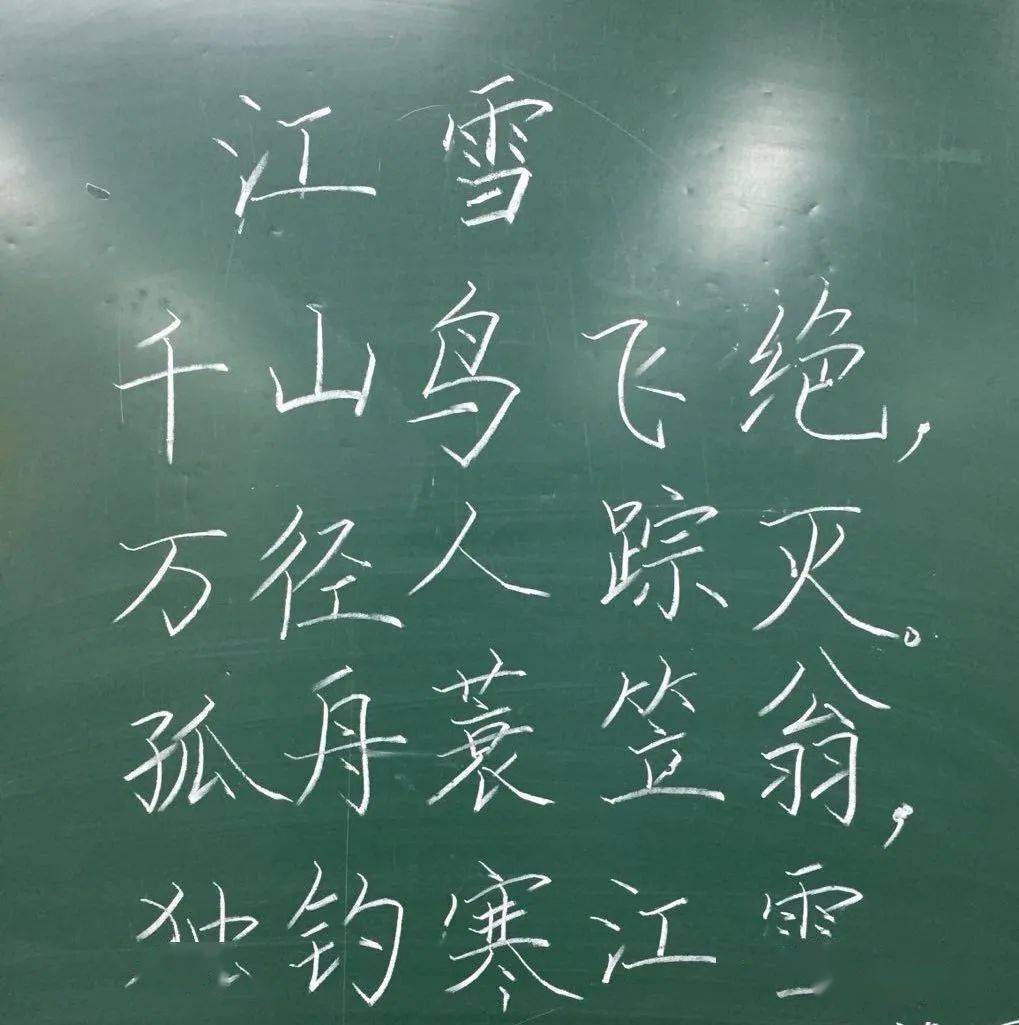 江雪
千山鸟飞绝,
万径人踪灭。
孤舟蓑笠翁,
独钓寒江雪